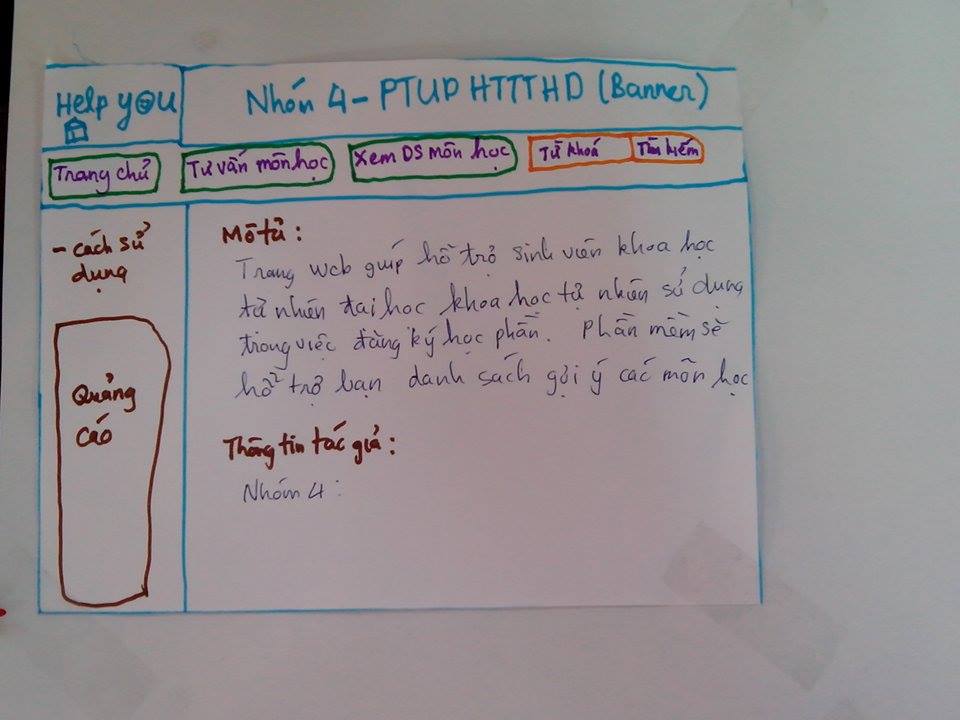 Help you
Nhóm 4 - PTUD HTTTHD (Banner)
Trang chủ
Tư vấn môn học
Xem DS môn học
Từ khoá
Tìm kiếm
- cách sử
dụng
Quảng
cáo
Mô tả :
Trang web giúp hỗ trợ sinh viên khoa học
tự nhiên đại học khoa học tự nhiên sử dụng
trong việc đăng ký học phần. Phần mềm sẽ
hỗ trợ bạn danh sách gợi ý các môn học
Thông tin tác giả :
Nhóm 4 :